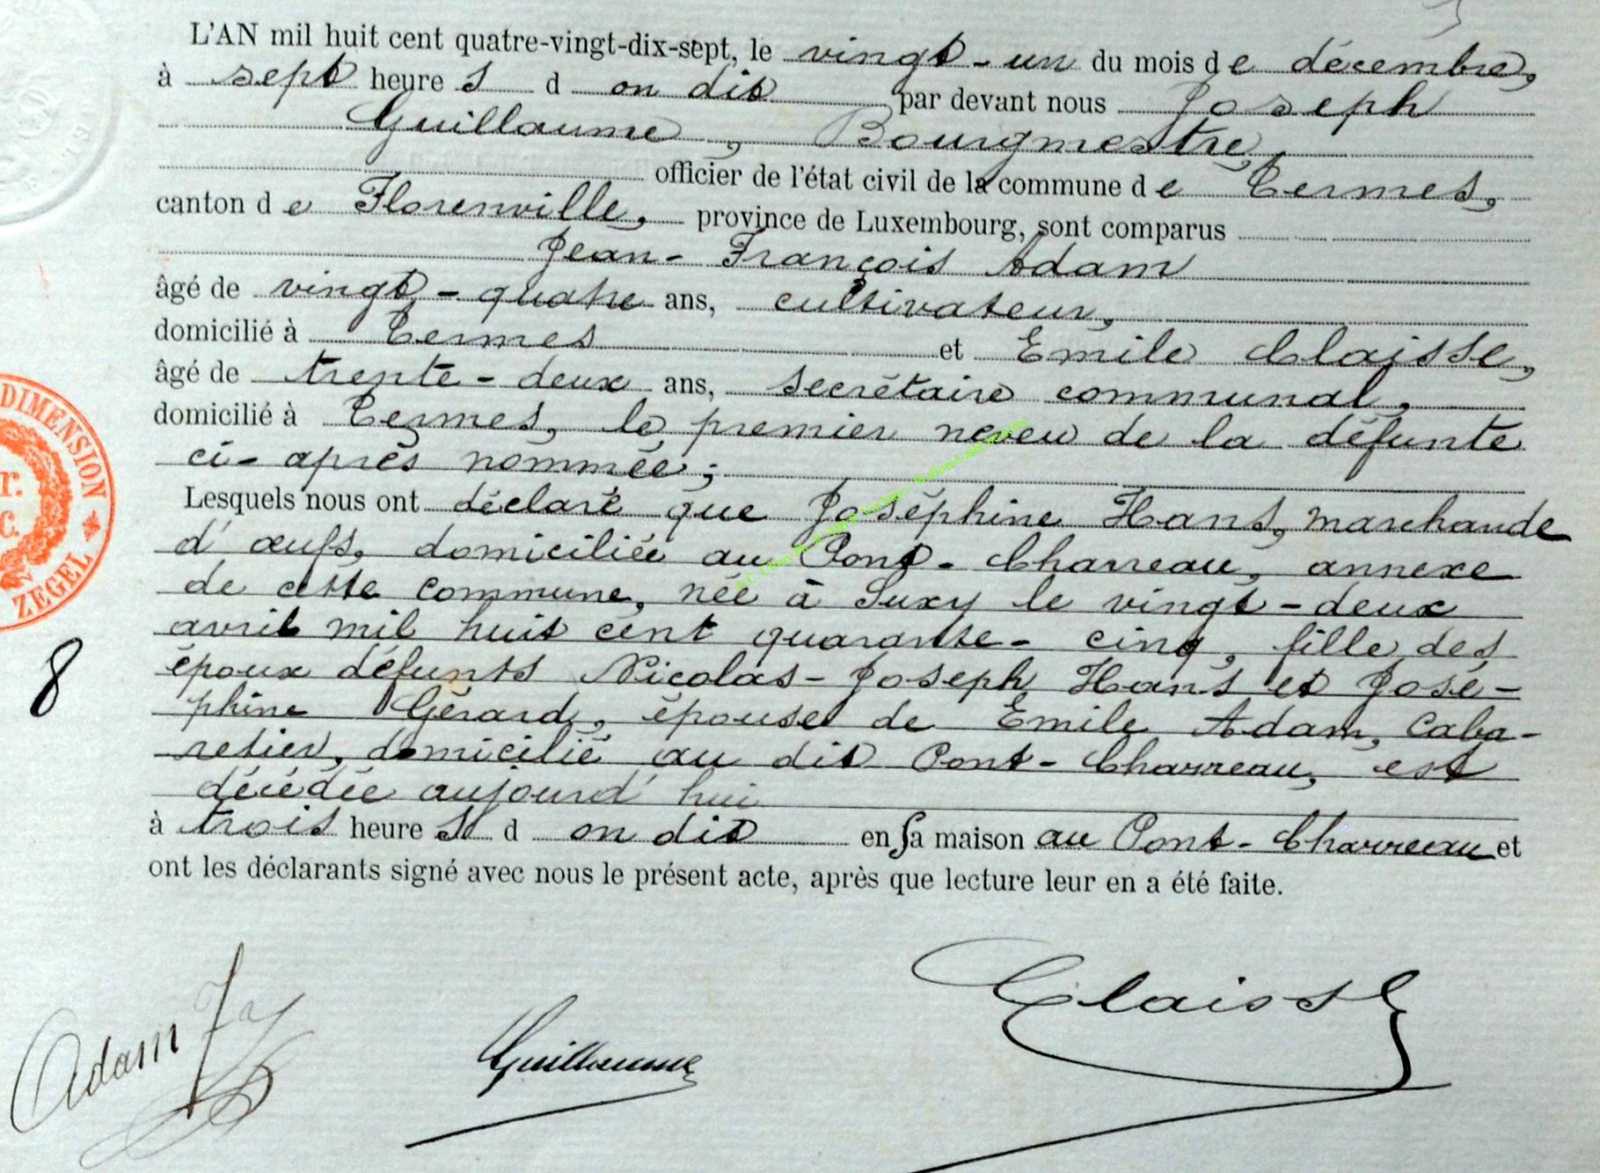 L'AN mil huit cent quatre-vingt-dix-sept, le vingt-un du mois de décembre,
à sept heures d on dit par devant nous Joseph
Guillaume, Bourgmestre,
officier de l'état civil de la commune de Termes,
canton de Florenville, province de Luxembourg, sont comparus
Jean-François Adam
âgé de vingt-quatre ans, cultivateur,
domicilié à Termes et Emile Claisse,
âgé de trente-deux ans, secrétaire communal,
domicilié à Termes, le premier neveu de la défunte
ci-après nommée;
Lesquels nous ont déclaré que Joséphine Hans, marchande
d'œufs, domiciliée au Pont-Charreau, annexe
de cette commune, née à Suxy le vingt-deux
avril mil huit cent quarante-cinq, fille des
époux défunts Nicolas-Joseph Hans et José-
phine Gérard, épouse de Emile Adam, caba-
retier, domicilié au dit Pont-Charreau, est
décédée aujourd'hui
à trois heures d on dit en sa maison au Pont-Charreau et
ont les déclarants signé avec nous le présent acte, après que lecture leur en a été faite.
DIMENSION
ZEGEL
8
Adam
Guillaume
Claisse